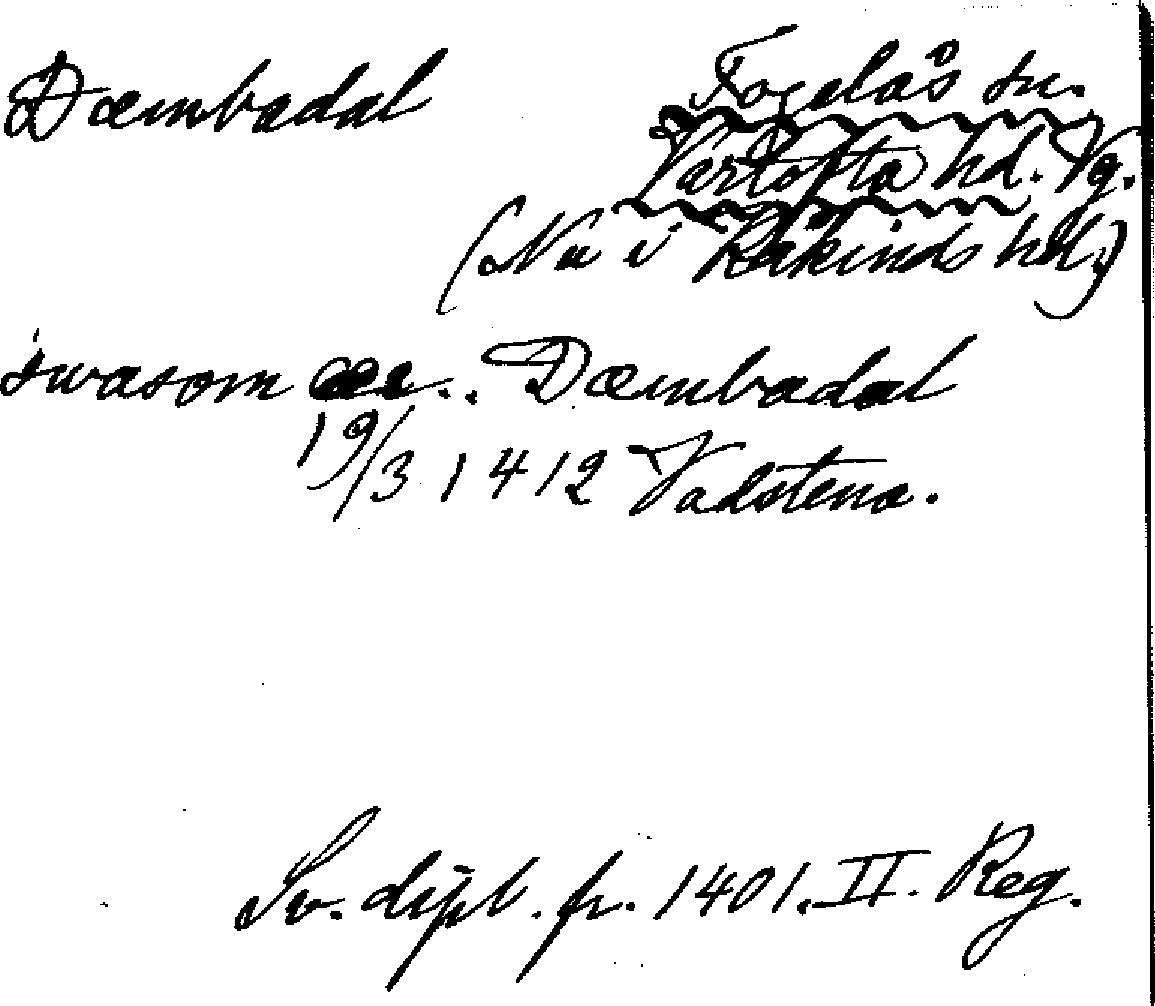 Dæmbadal
Fogelås sn.
Vartofta hd. Vg.
(Nu i Kåkinds hd.)
swasom ær.. Dæmbadal
19/3 1412 Vadstena.
Sv. dipl. fr. 1401. II. Reg.